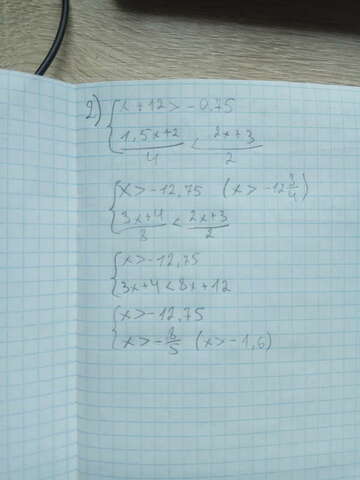 2) { x + 12 > -0,75
{ (1,5x+2)/4 < (2x+3)/2
{ x > -12,75 (x > -12 3/4)
{ (3x+4)/8 < (2x+3)/2
{ x > -12,75
{ 3x+4 < 8x + 12
{ x > -12,75
{ x > -8/5 (x > -1,6)